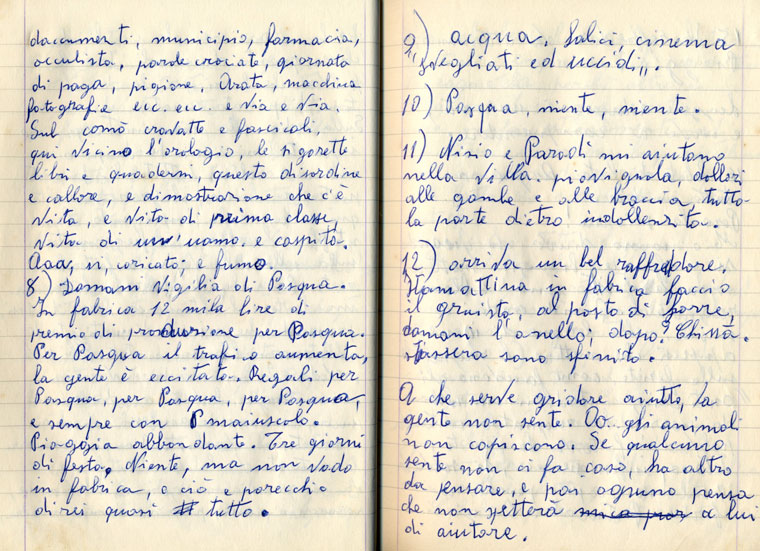 documenti, municipio, farmacia,
occulista, parole crociate, giornata
di paga, pigione, Arata, macchina
fotografie ecc. ecc. e via e via.
Sul comò cravatte e fascicoli,
qui vicino l'orologio, le sigarette
libri e quaderni, questo disordine
e callore, e dimostrazione che c'è
vita, e vita di prima classe,
vita di un'uomo. e caspita.
Aaa, sì, coricato; e fumo.
8) Domani Vigilia di Pasqua.
In fabrica 12 mila lire di
premio di produzione per Pasqua.
Per Pasqua il trafico aumenta,
la gente è eccitata. Regali per
Pasqua, per Pasqua, per Pasqua,
e sempre con P maiuscolo.
Pioggia abbondante. Tre giorni
di festa. Niente, ma non vado
in fabrica, e ciò e parecchio
direi quasi tutto.
9) acqua, Salici, cinema
"Svegliati ed uccidi".
10) Pasqua, niente, niente.
11) Nisio e Parodi mi aiutano
nella Villa. pioviggnola, dollori
alle gambe e alle braccia, tutta
la parte dietro indollenzita.
12) arriva un bel raffreddore.
Stamattina in fabrica faccio
il gruista, al posto di Torre,
domani l'anello; dopo? Chissà.
stassera sono sfinito.
A che serve gridare aiutto, la
gente non sente. Oo.. gli animali
non capiscono. Se qualcuno
sente non ci fa caso, ha altro
da pensare, e poi ognuno pensa
che non spetterà a lui
di aiutare.